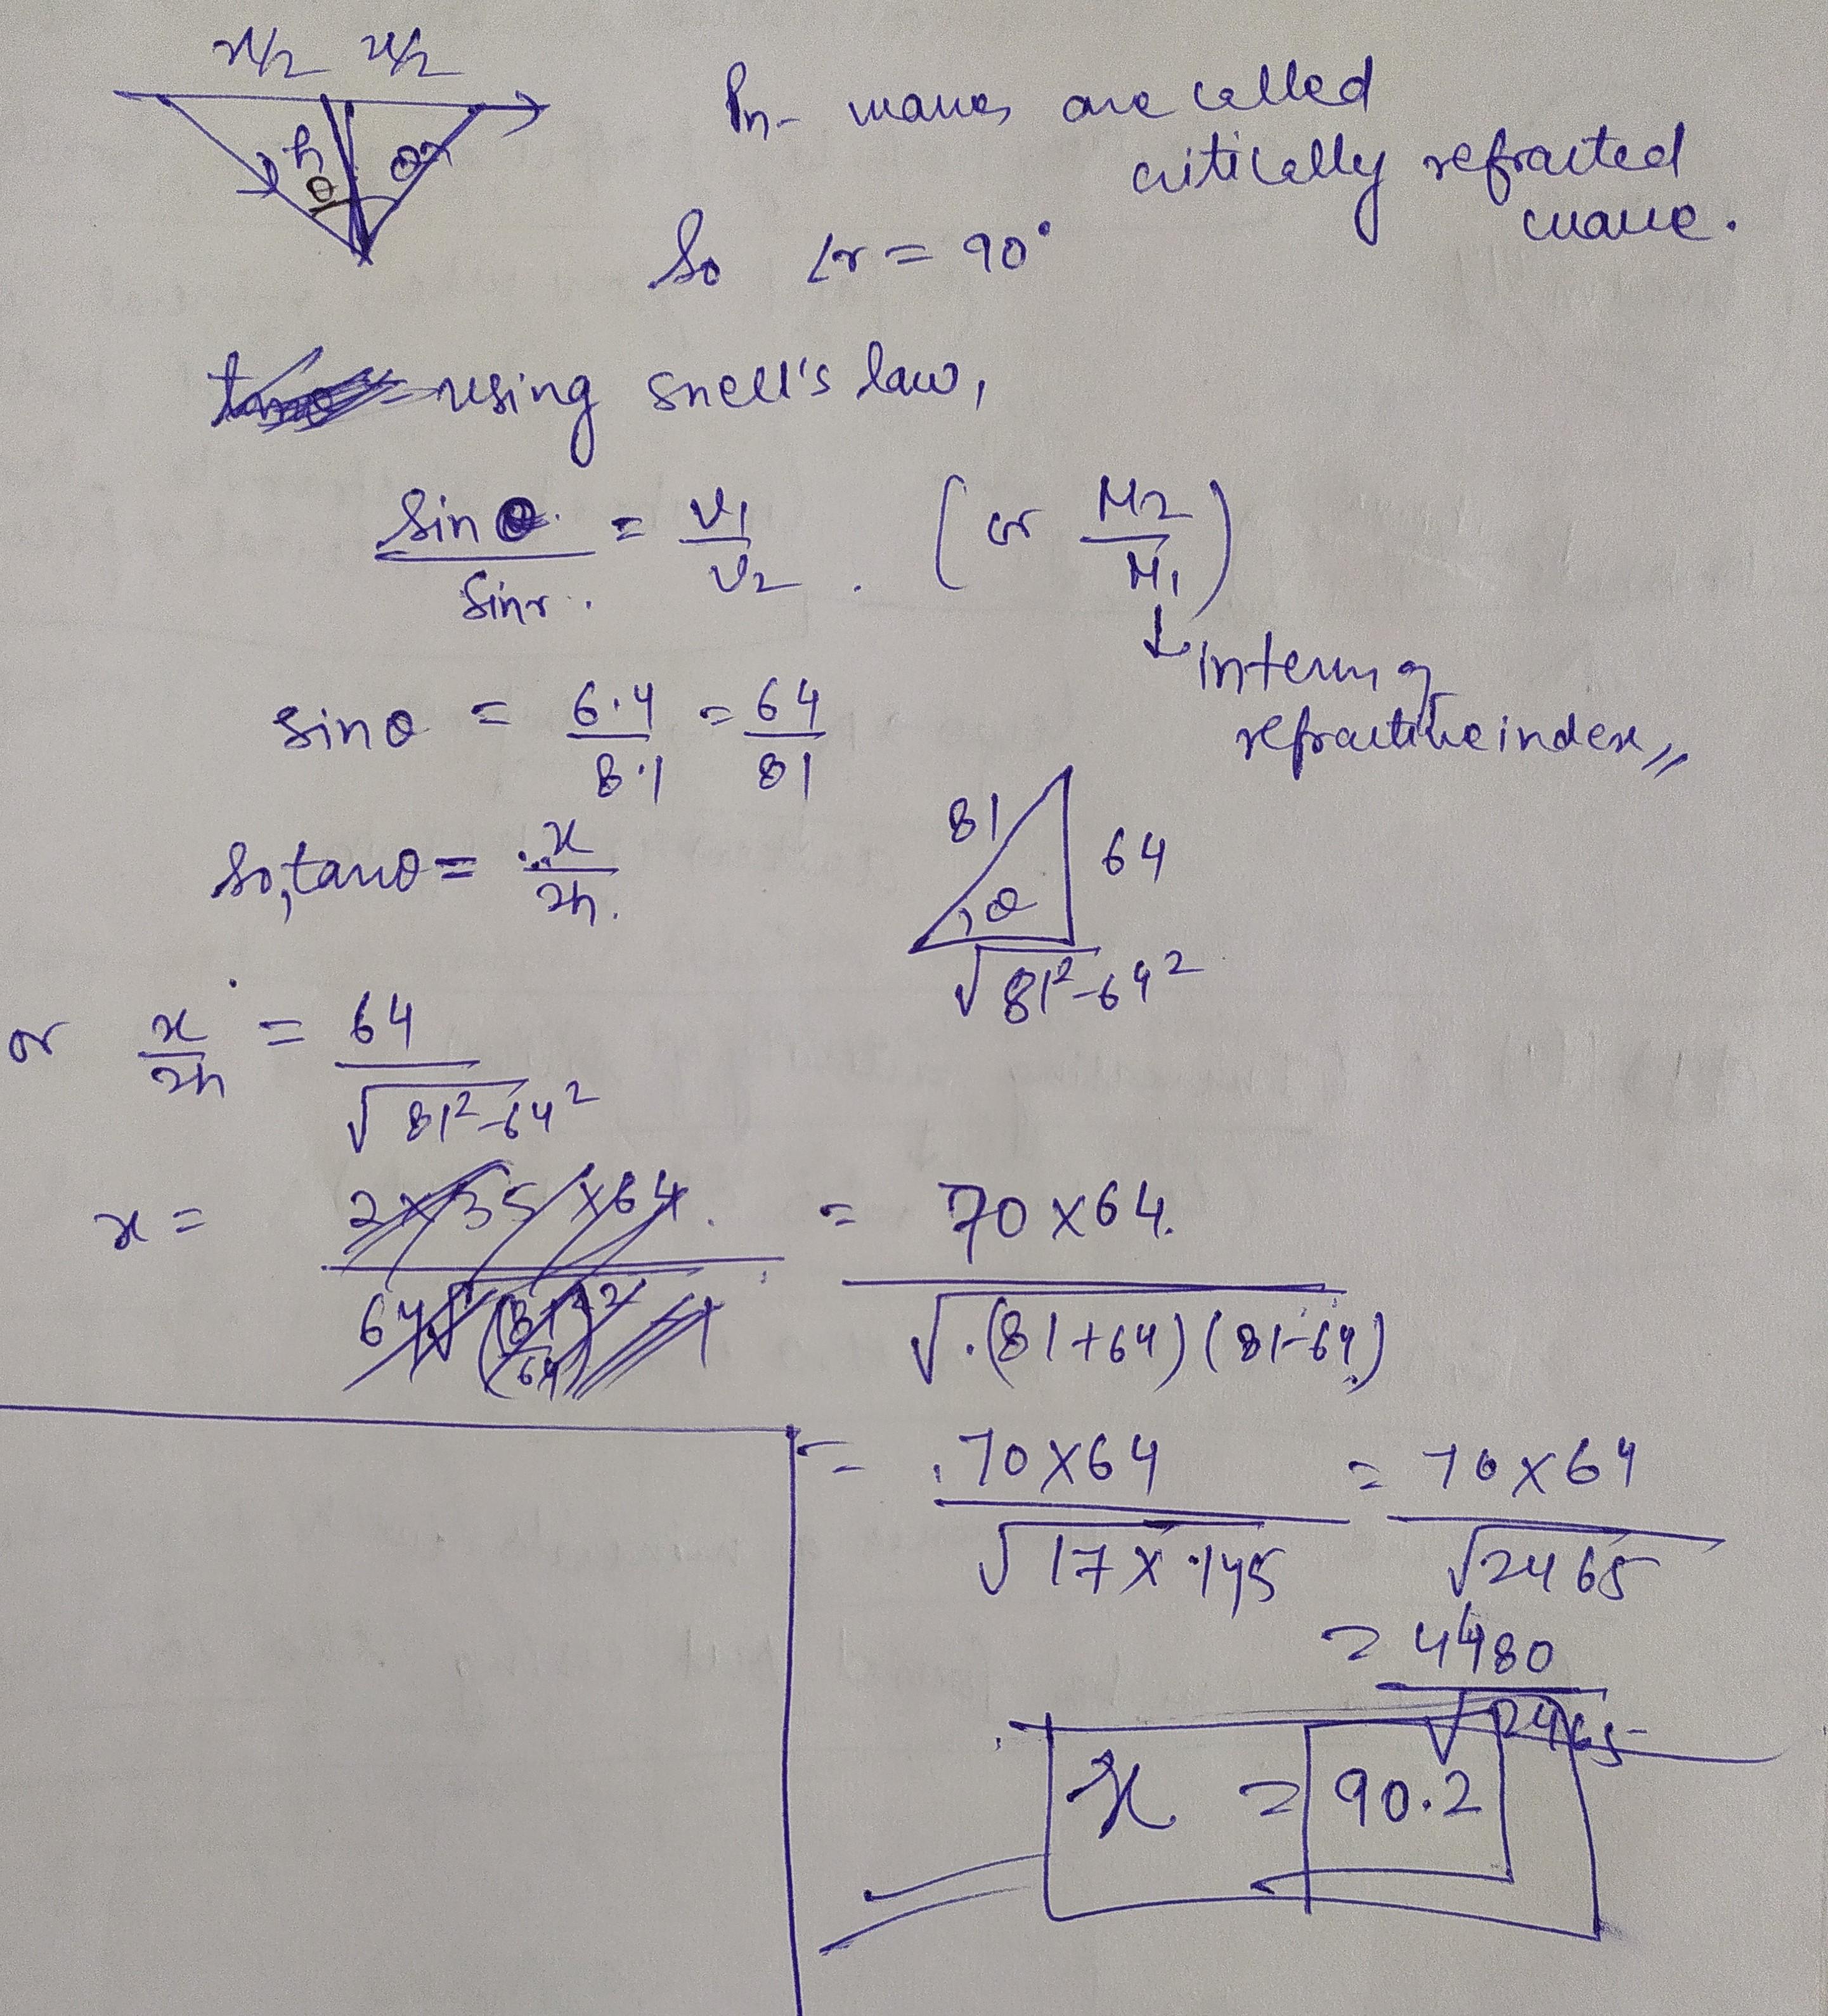 x/2 x/2
h θ θ
Pn- waves are called
critically refracted
wave.
So ∠r = 90°
using snell's law,
sin θ / sin r = v1 / v2 . (or μ2 / μ1)
↓ in term of
refractive index //
sin θ = 6.4 / 8.1 = 64 / 81
81 64
θ
√81²-64²
So, tan θ = x / 2h.
or x / 2h = 64 / √81²-64²
x = = 70 x 64. / √(81+64)(81-64)
= 70 x 64 / √17 x 145 = 70 x 64 / √2465
= 4480 / √2465
x = 90.2